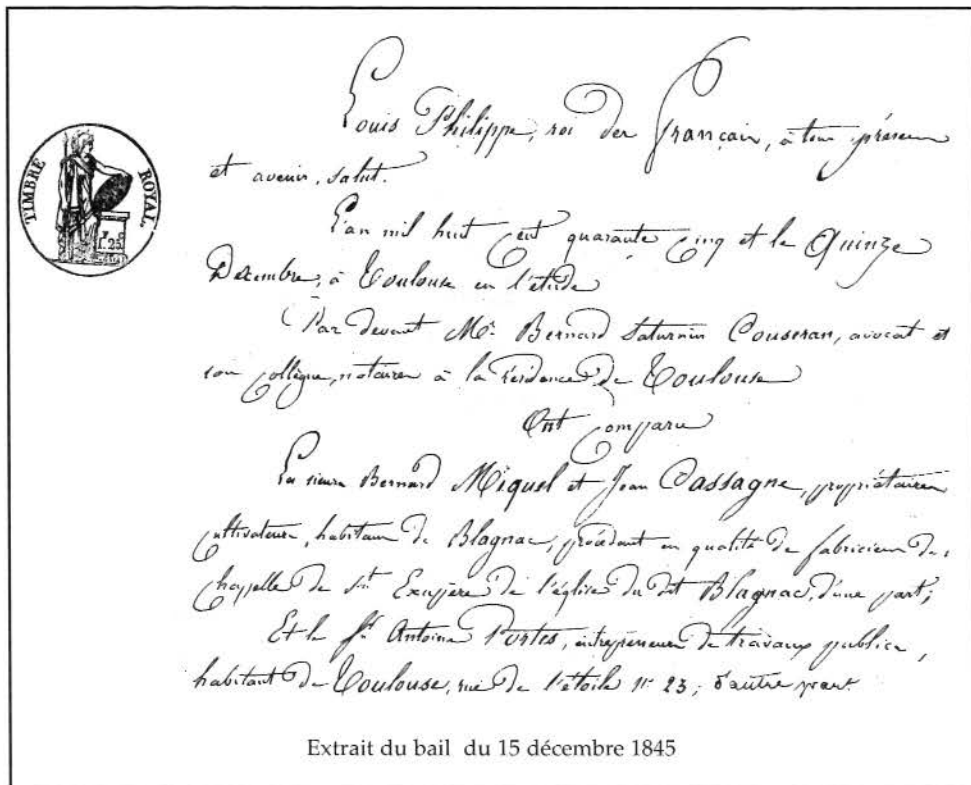 TIMBRE ROYAL
1.25
Louis Philippe, roi des Français, à tous présens
et avenir, salut.
L'an mil huit cent quarante cinq et le Quinze
Décembre, à Toulouse en l'étude
Par devant Me. Bernard Saturnin Couseran, avocat et
son collègue, notaires à la résidence de Toulouse
Ont Comparu
Les sieurs Bernard Miquel et Jean Cassagne, propriétaires
cultivateurs, habitans de Blagnac, procédant en qualité de fabriciens de
chapelle de St Exupère de l'église du dit Blagnac, d'une part;
Et le Sr. Antoine Portes, entrepreneur de travaux publics,
habitant de Toulouse, rue de l'étoile n° 23; d'autre part.
Extrait du bail du 15 décembre 1845